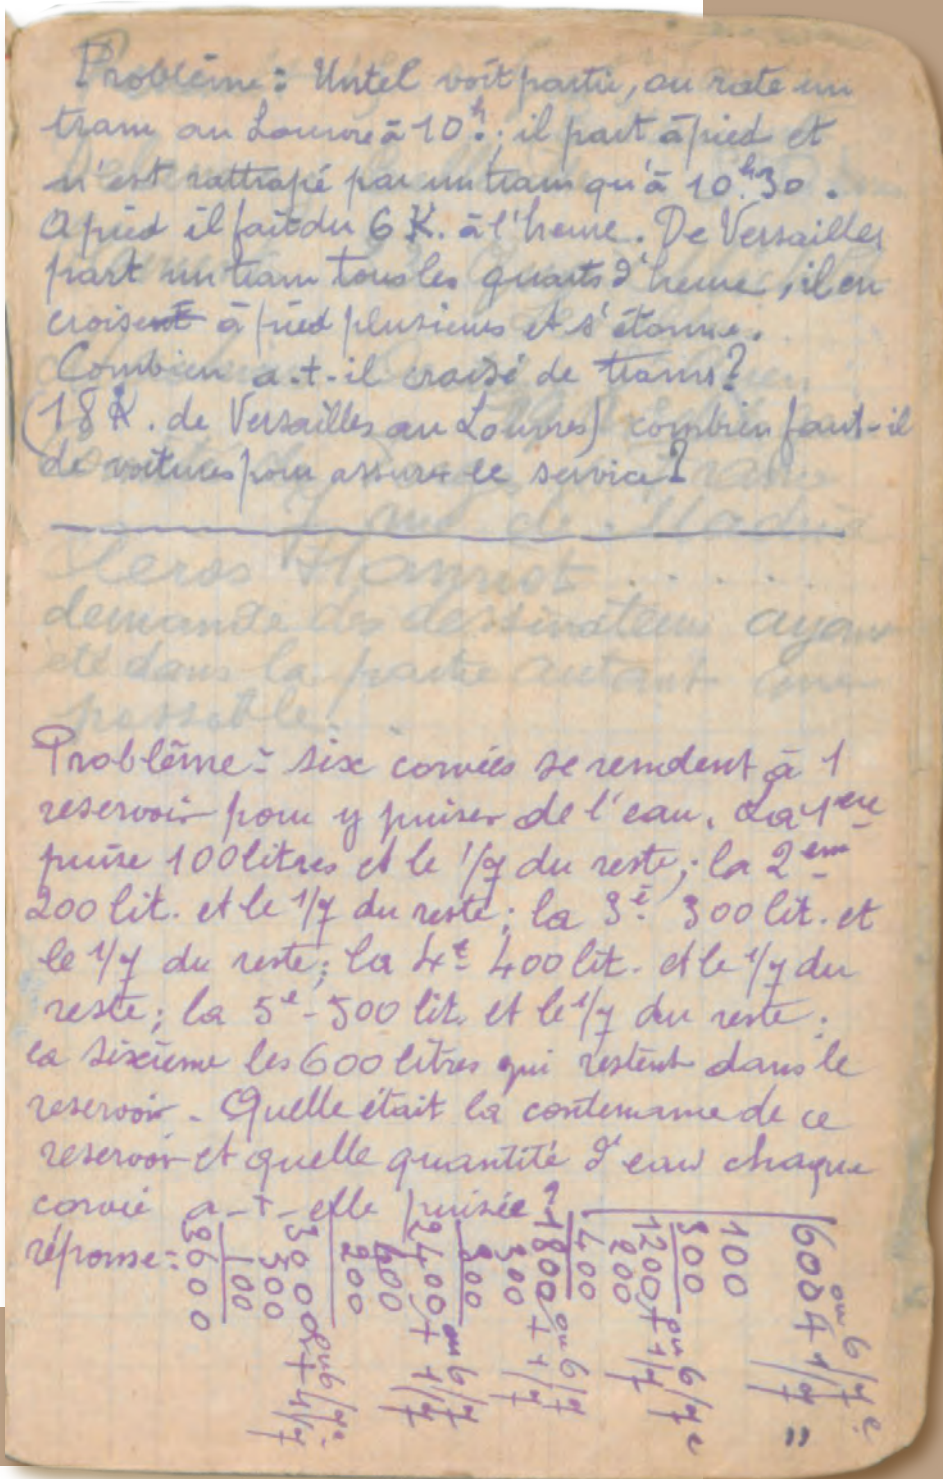 Problème: Untel voit partir, ou rate un
tram au Louvre à 10h.; il part à pied et
n'est rattrapé par un tram qu'à 10h.30.
A pied il fait du 6 K. à l'heure. De Versailles
part un tram tous les quarts d'heure, il en
croise à pied plusieurs et s'étonne.
Combien a-t-il croisé de trams?
(18 K. de Versailles au Louvres) combien faut-il
de voitures pour assurer le service?
rue de Madrid
Hanriot
demande des dessinateurs ayant
été dans la partie autant que
possible.
Problème: six corvées se rendent à 1
reservoir pour y puiser de l'eau. La 1ere
puise 100 litres et le 1/7 du reste; la 2eme
200 lit. et le 1/7 du reste; la 3e 300 lit. et
le 1/7 du reste; la 4e 400 lit. et le 1/7 du
reste; la 5e - 500 lit. et le 1/7 du reste;
la sixième les 600 litres qui restent dans le
reservoir. Quelle était la contenance de ce
reservoir et quelle quantité d'eau chaque
corvée a-t-elle puisée?
réponse:
600 + 1/7 ou 6/7e
100
500
1200 + 1/7 ou 6/7e
200
400
1800 + 1/7 ou 6/7
300
300
2400 + 1/7 ou 6/7
400
200
3000 + 1/7 ou 6/7e
500
100
3600